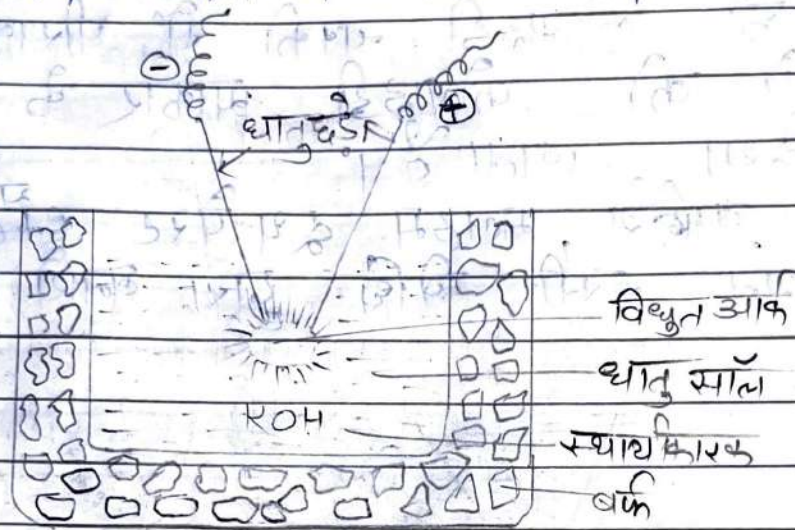 ⊖
⊕
धातु छड़ें
विधुत आर्क
धातु सॉल
KOH
स्थायीकारक
बर्फ